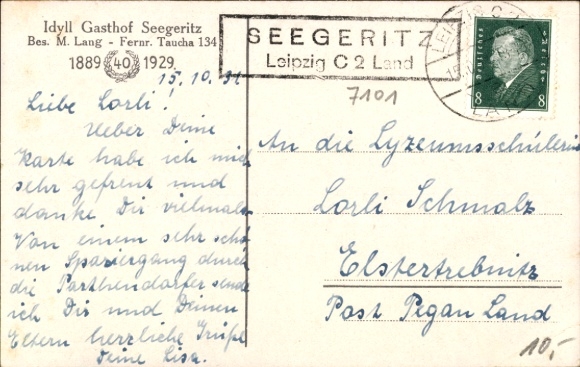 Idyll Gasthof Seegeritz
Bes. M. Lang - Fernr. Taucha 134
1889 40 1929
SEEGERITZ
Leipzig C 2 Land
LEIPZIG C 2
LAND
Deutsches Reich
8 8
7101
15.10.31
Liebe Lorli!
Ueber Deine
Karte habe ich mich
sehr gefreut und
danke Dir vielmals.
Von einem sehr schö-
nen Spaziergang durch
die Parthendörfer sende
ich Dir und Deinen
Eltern herzliche Grüße
Deine Lisa.
An die Lyzeumsschülerin
Lorli Schmalz
Elstertrebnitz
Post Pegau Land
10,-